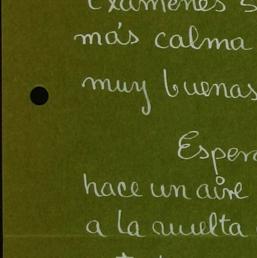 Exámenes s
más calma
muy buenas
Espero
hace un aire
a la vuelta